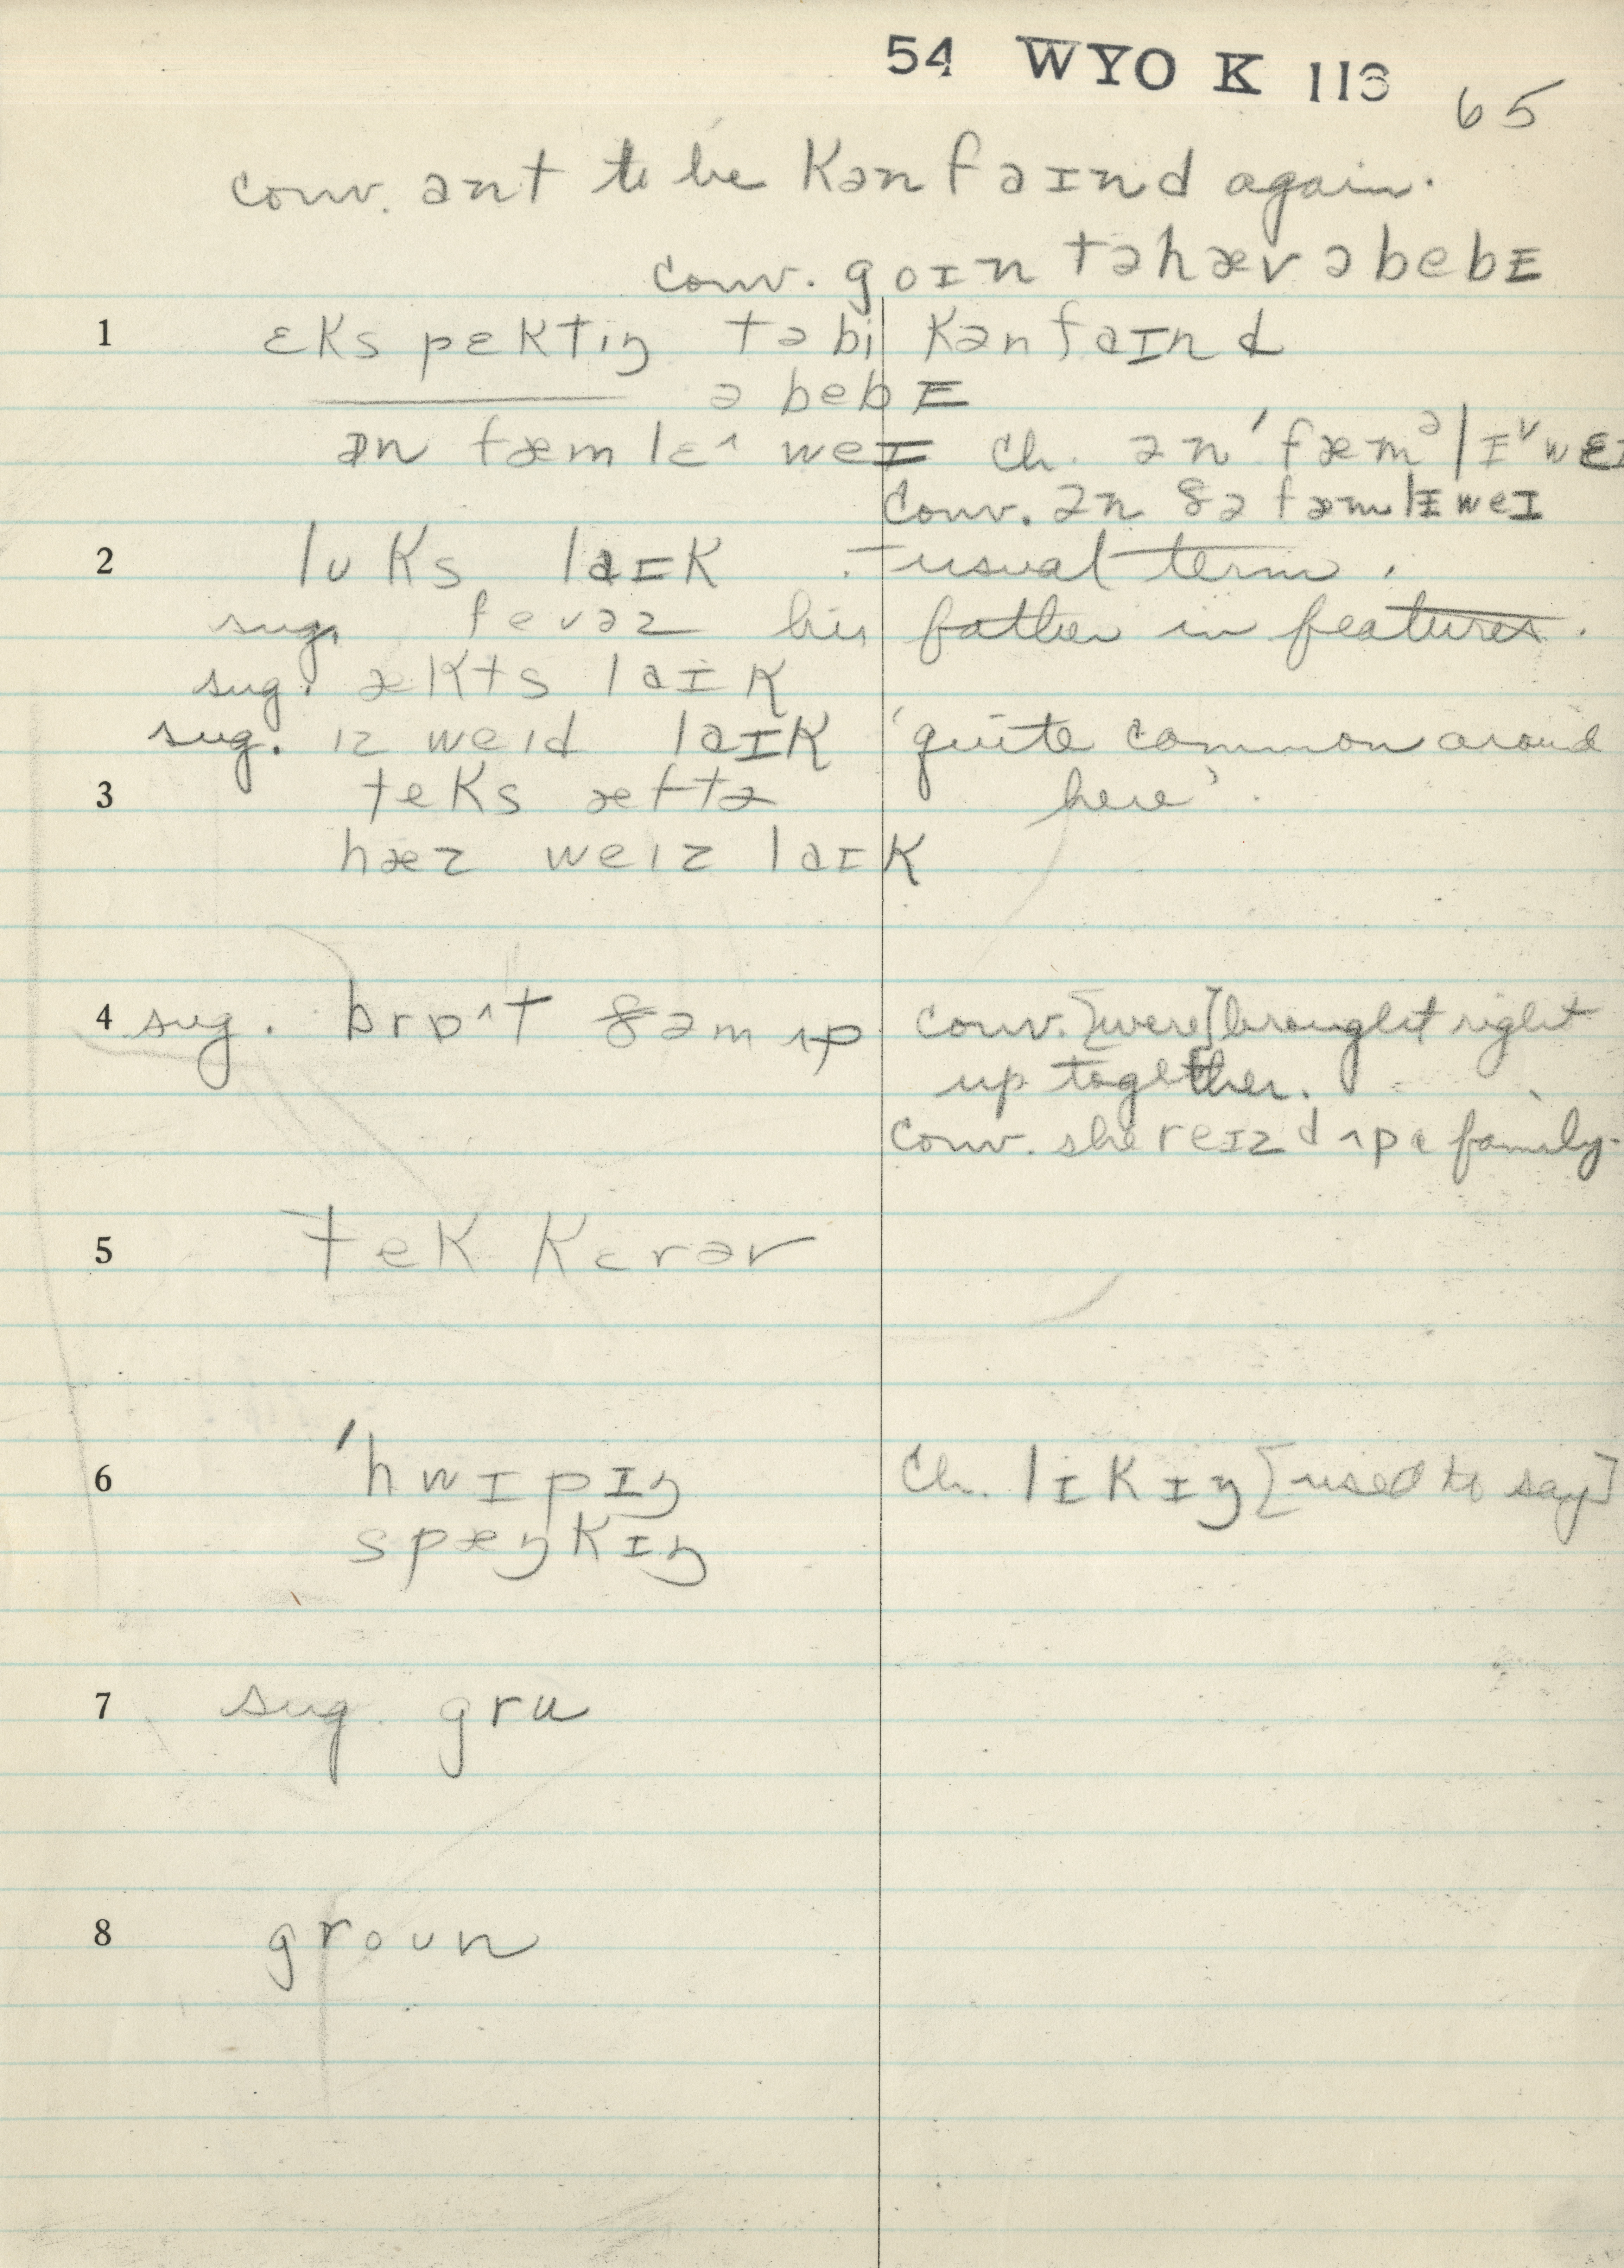 54 WYO K 113 65
conv. ant to be kənfaɪnd again.
conv. goɪn təhæv əbebɪ
1 ɛkspɛktiŋ təbi kənfaɪnd
ə bebɪ
ɪn fæmlɛ^ weɪ ch. ən 'fæmᵊlɪ˅weɪ
conv. ən ðə fæmlɪweɪ
2 lʊks laɪk :-usual term.
sug. fevəz his father in features.
sug. ækts laɪk
sug. ɪz weɪd laɪk 'quite common around
3 teks æftə here'.
hæz weɪz laɪk
4 sug. brɒ^t ðəm ʌp conv. [were] brought right
up together.
conv. she reɪzd ʌp a family.
5 tek kɛrəv
6 'hwɪpɪŋ ch. lɪkɪŋ [used to say]
spæŋkɪŋ
7 sug. gru
8 groʊn